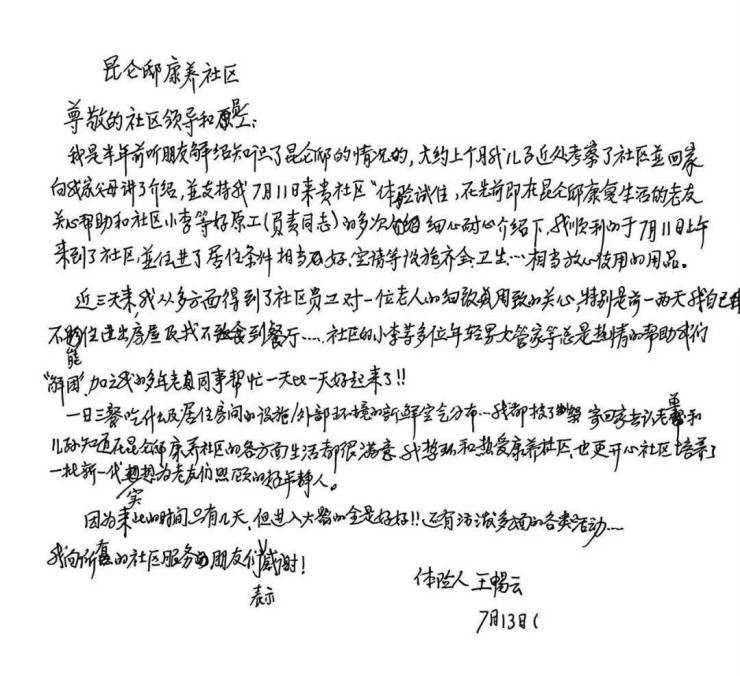 昆仑邸康养社区
尊敬的社区领导和员工:
我是半年前听朋友解绍知识了昆仑邸的情况的,大约上个月我儿子近处考察了社区並回家
向我家父母讲了介绍,並支持我7月11日来贵社区“体验试住,在先前即在昆仑邸康复生活的老友
关心帮助和社区小李等好原工(负责同志)的多次细心耐心介绍下,我顺利的于7月11日上午
来到了社区,並住进了居住条件相当好,空请等设施齐全、卫生…相当放心使用的用品。
近三天来,我从多方面得到了社区员工对一位老人的细致周致的关心,特别是前一两天我自已
不能住进出房屋及找不到餐厅……社区的小李等多位年轻男大管家等总是热情的帮助我们
“解困”,加之我的多年老同事帮忙一天比一天好起来了!!
一日三餐吃什么及居住房间的设施/外部环境的新鲜空气分布…我都拔了寄回家去让老和
儿孙知道在昆仑邸康养社区的各方面生活都很满意,我想和热爱康养社区,也更开心社区培养了
一批新一代想为老友们照顾的好年静人。
因为来此的时间只有几天,但进入大器的全是好好!!还有活泼多面的各类活动……
我向所有的社区服务的朋友们表示感谢!
体险人 王鸭云
7月13日(